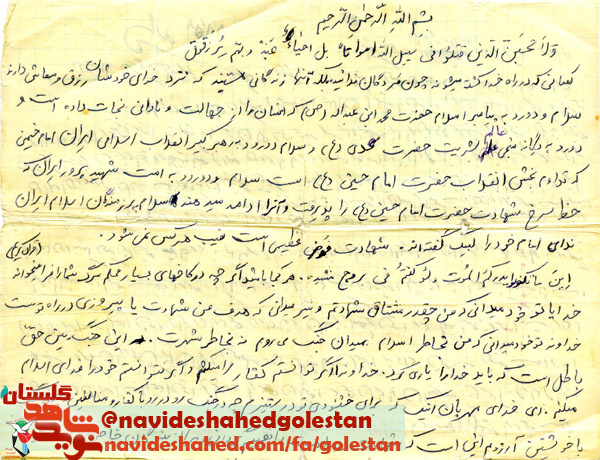 بسم الله الرحمن الرحیم
ولا تحسبن الذین قتلوا فی سبیل الله امواتا بل احیاء عند ربهم یرزقون
کسانی که در راه خدا کشته میشوند چون مردگان ندانید بلکه آنها زندگانی هستند که نزد خدای خودشان رزق و معاش دارند
سلام و درود به پیامبر اسلام حضرت محمد ابن عبدالله (ص) که انسان را از جهالت و نادانی نجات داده است و
درود به یگانه منجی عالم بشریت حضرت مهدی (عج) و سلام و درود به رهبر کبیر انقلاب اسلامی ایران امام خمینی
که تداوم بخش انقلاب حضرت امام حسین (ع) است سلام و درود به امت شهید پرور ایران که
خط سرخ شهادت حضرت امام حسین (ع) را پذیرفت و آنرا ادامه میدهند سلام به رزمندگان اسلام ایران
ندای امام خود را لبیک گفته‌اند. شهادت فیض عظیمی است نصیب هر کس نمی شود.
این ما تکونوا یدرککم الموت ولو کنتم فی بروج مشیده. هر کجا باشید اگر چه در کاخهای بسیار محکم مرگ شما را فرا میگیرد
خدایا تو خود میدانی که من چقدر مشتاق شهادتم و نیز میدانی که هدف من شهادت یا پیروزی در راه توست
خداوندا تو خود میدانی که من بخاطر اسلام بمیدان جنگ می روم نه بخاطر شهرت. این جنگ بین حق
باطل است که باید خدا را یاری کرد. خداوندا اگر توانستم کفار را میکشم و اگر نتوانستم خود را فدای اسلام
میکنم. ای خدای مهربان اینک که برای خشنودی تو در ستیزم چه در جنگ رو در رو با کفار و منافقین
با خویشتن آرزویم این است که
گلستان
نوید شاهد
@navideshahedgolestan
navideshahed.com/fa/golestan